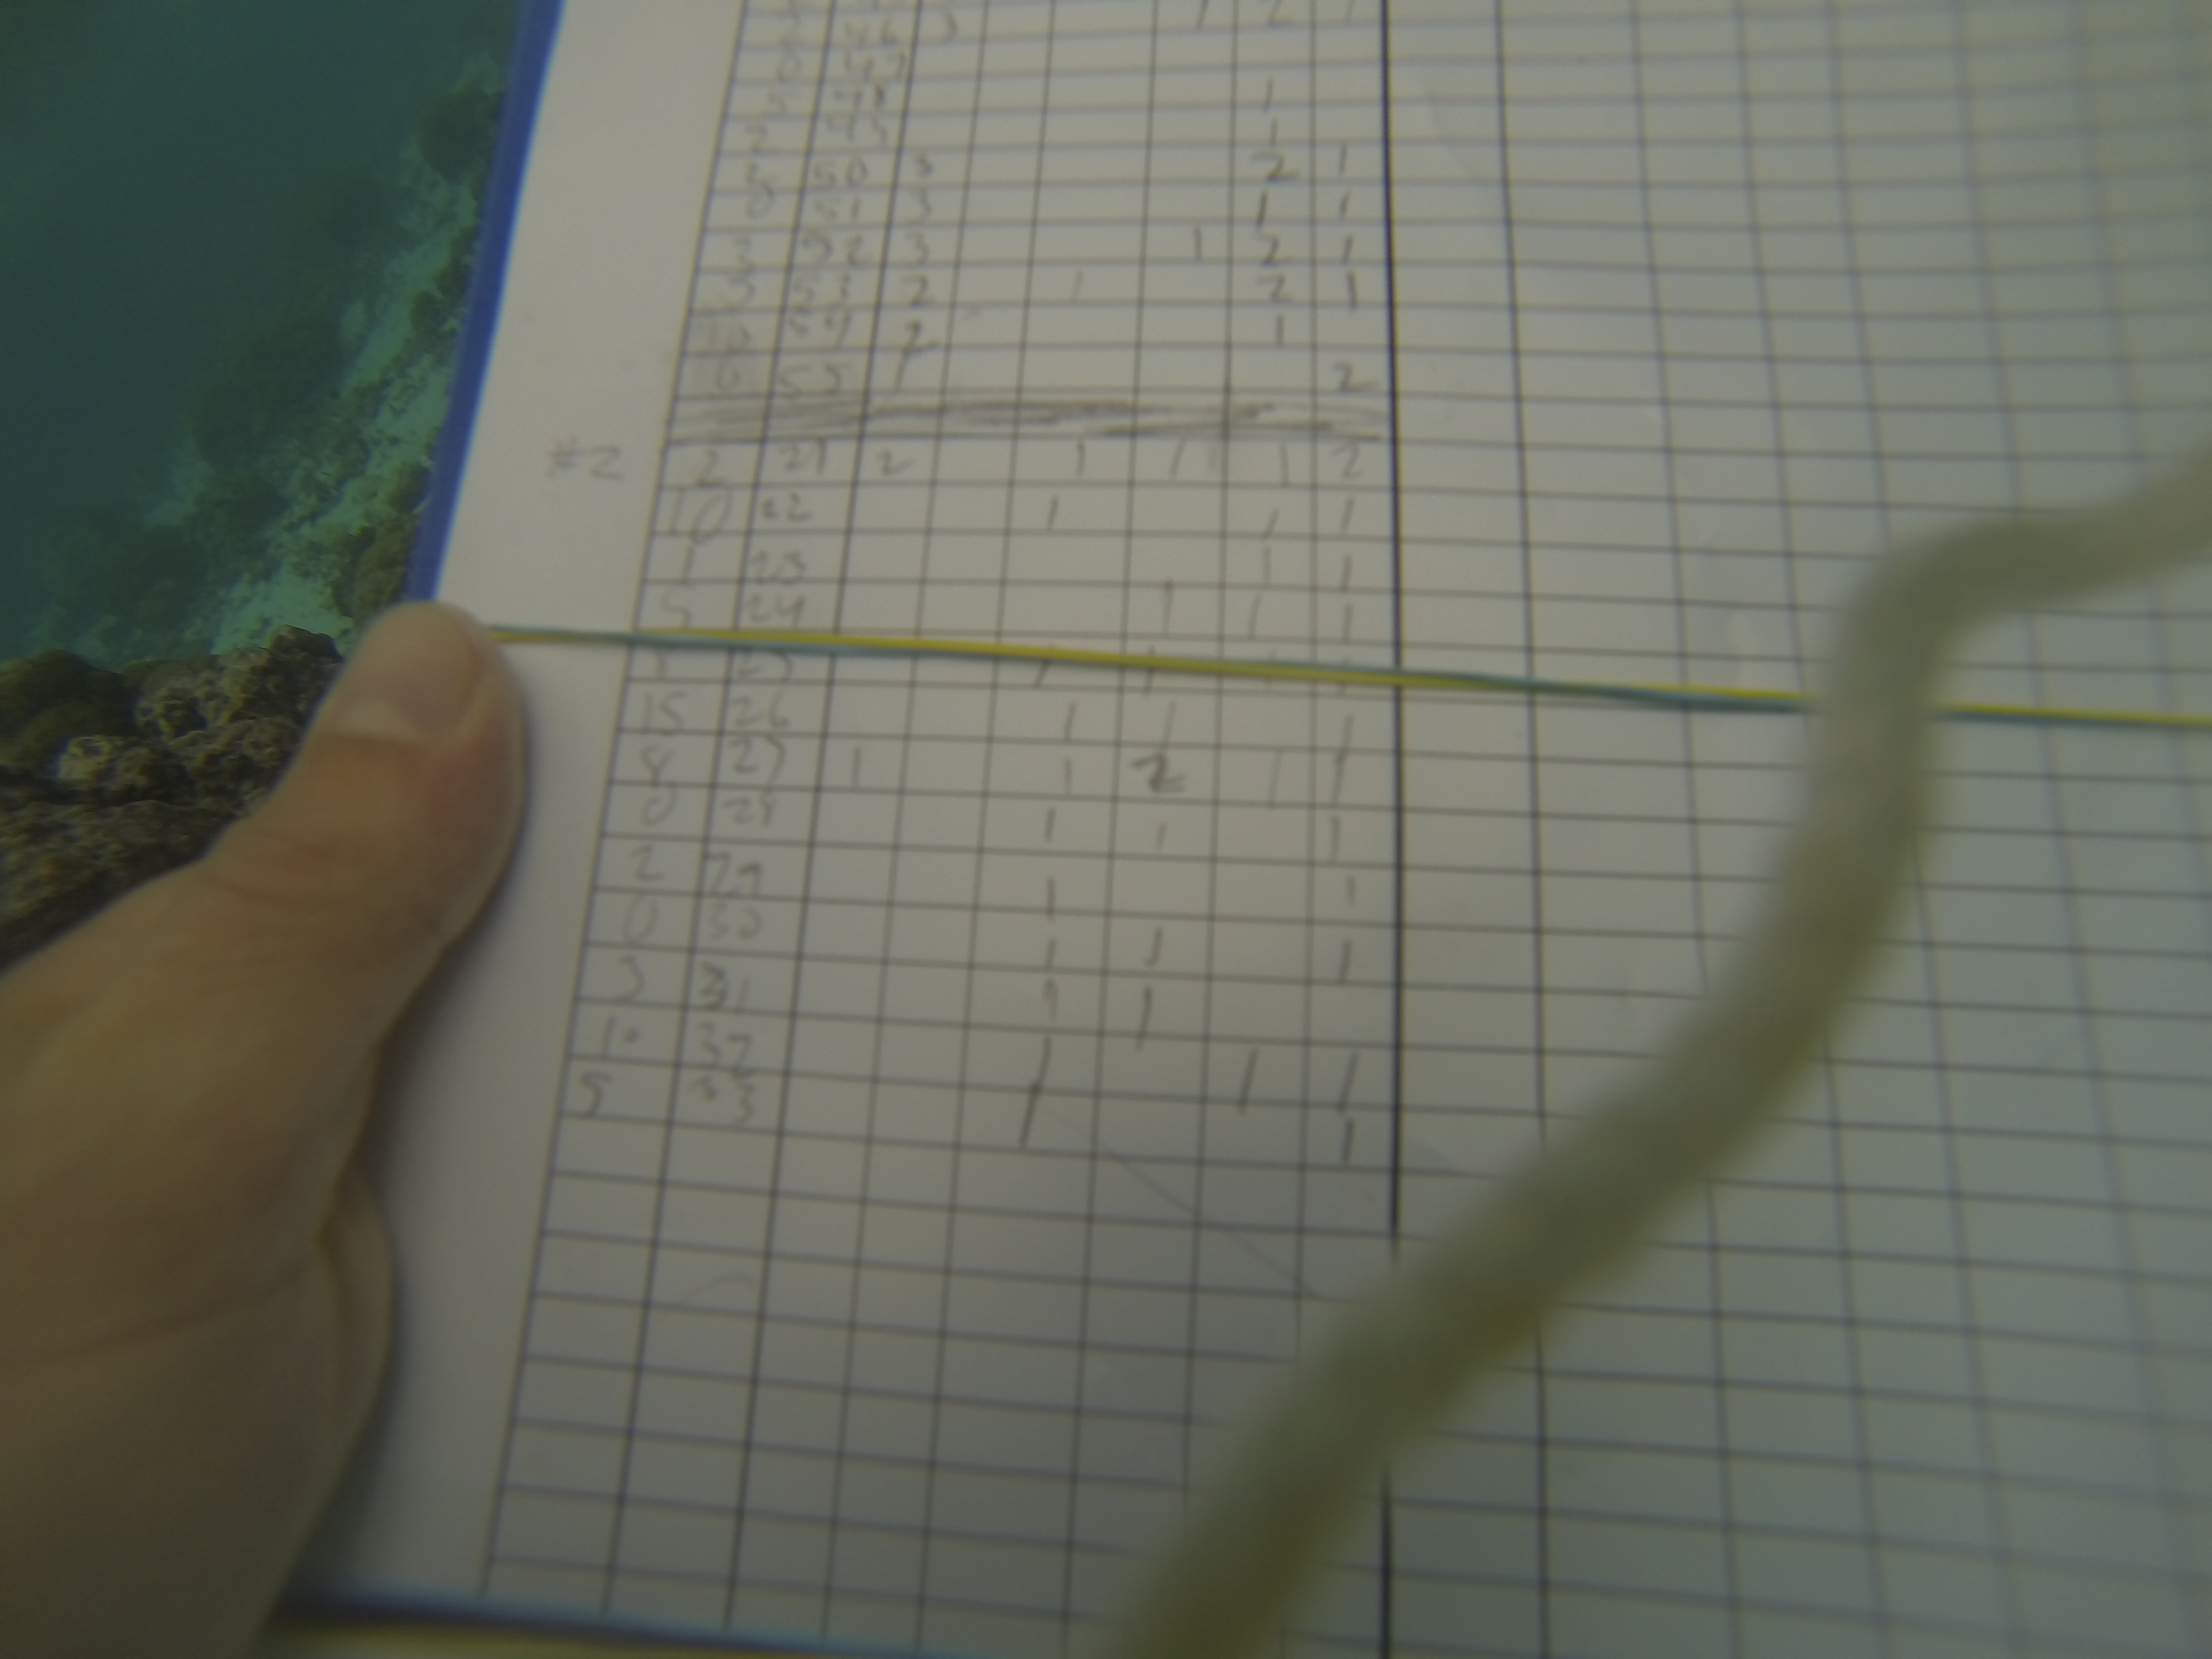 46 3
0 47
5 48 1
2 49 1
50 3 2 1
0 51 3 1 1
3 52 3 1 2 1
3 53 2 1 2 1
2 1
0 55 1 2
#2 2 21 2 1 1 1 2
10 22 1 1 1
1 23 1 1
5 24 1 1 1
25 1 1 1 1
15 26 1 1 1
8 27 1 1 2 1 1
0 28 1 1 1
2 29 1 1
0 30 1 1 1
3 31 1 1
10 32 1 1 1
5 33 1 1